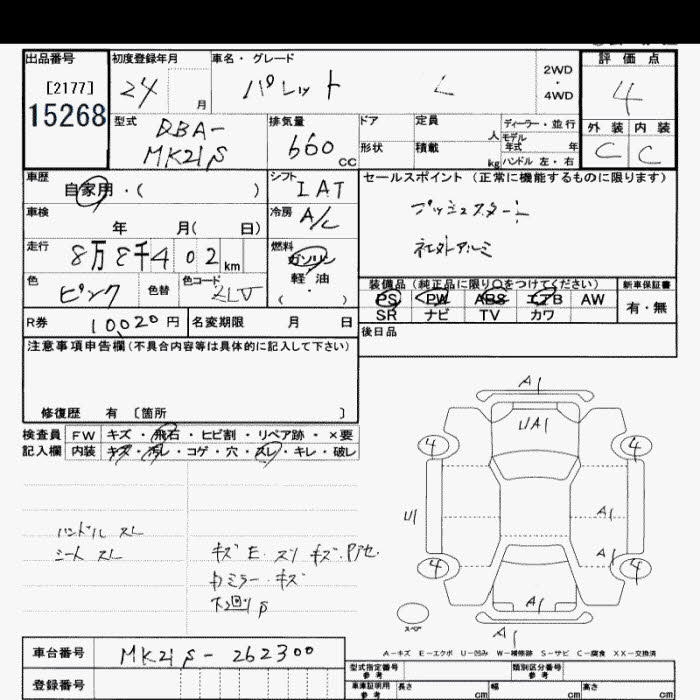 出品番号 初度登録年月 車名・グレード 評価点
[2177] 24 月 パレット L 2WD・4WD 4
15268
型式 DBA-MK21S 排気量 660 CC ドア 定員 人 ディーラー・並行 外装 内装
形状 積載 kg モデル年式 年 C C
ハンドル 左・右
車歴 自家用・( ) シフト IAT セールスポイント (正常に機能するものに限ります)
車検 年 月( 日) 冷房 A/C プッシュスタート
走行 8万8千402km 燃料 ガソリン 軽・油 ・( ) 社外アルミ
色 ピンク 色替 色コード ZLV
装備品(純正品に限り○をつけてください) 新車保証書
PS PW ABS エアB AW 有・無
SR ナビ TV カワ
R券 10,020円 名変期限 月 日 後日品
注意事項申告欄(不具合内容等は具体的に記入して下さい)
修復歴 有 〔箇所 〕
検査員 FW キズ・飛石・ヒビ割・リペア跡・×要
記入欄 内装 キズ・汚レ・コゲ・穴・スレ・キレ・破レ
A1
UA1
4 4
U1 A1
A1
4 4
A1
スペア
ハンドル スレ
シート スレ
キズ E. スリ キズ.
ミラー・キズ
A-キズ E-エクボ U-凹み W-補修跡 S-サビ C-腐食 XX-交換済
車台番号 MK21S-262300
登録番号
型式指定番号 参考 類別区分番号 参考
車庫証明用 参考 長さ cm 幅 cm 高さ cm